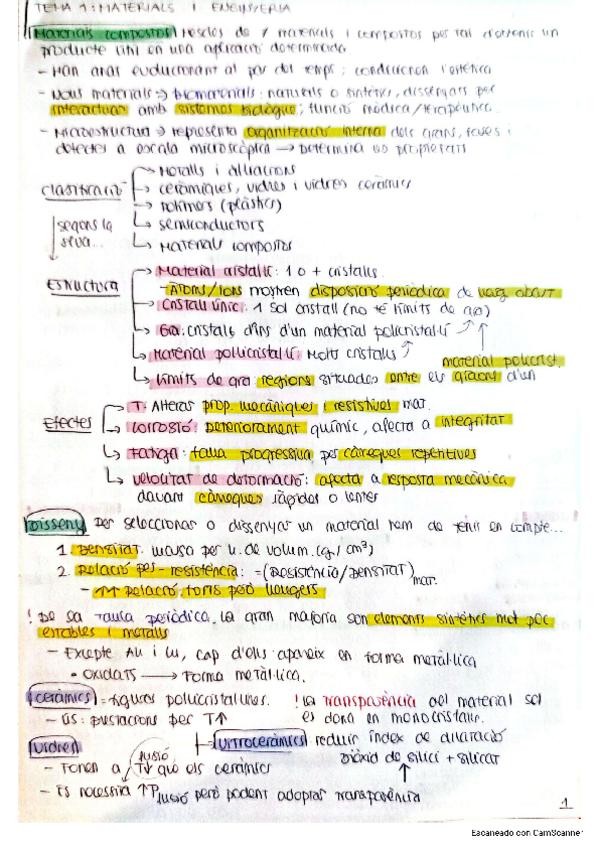 TEMA 1: MATERIALS I ENGINYERIA
Materials compostos: mescles de ≠ materials i compostos per tal d'obtenir un
producte útil en una aplicació determinada
- Han anat evolucionant al pas del temps; condicionen l'estètica
- Nous materials ⇒ Biomaterials: naturals o sintètics, dissenyats per
interactuar amb sistemes biològics; funció mèdica/terapèutica.
- Microestructura ⇒ representa organització interna dels grans, fases i
defectes a escala microscòpica → Determina les propietats
Classificació
segons la
seva...
→ Metalls i aliacions
→ ceràmiques, vidres i vidres ceràmics
→ polímers (plàstics)
→ semiconductors
→ Materials compostos
Estructura
→ Material cristal·lí: 1 o + cristalls.
- Àtoms/ions mostren disposició periòdica de llarg abast
→ Cristall únic: 1 sol cristall (no té límits de gra)
→ Gra: cristalls dins d'un material policristal·lí
→ Material policristal·lí: Molts cristalls
→ límits de gra: regions situades entre els grans d'un
material policrist.
Efectes
→ T: Alteras prop. mecàniques i resistives mat.
→ Corrosió: Deteriorament químic, afecta a integritat
→ Fatiga: falla progressiva per càrregues repetitives
→ velocitat de deformació: afecta a resposta mecànica
davant càrregues ràpides o lentes
Disseny Per seleccionar o dissenyar un material hem de tenir en compte...
1. Densitat: massa per u. de volum. (g/cm³)
2. Relació pes-resistència: - (Resistència/Densitat) mat.
- ↑↑ Relació, forts però lleugers
! De sa taula periòdica, la gran majoria son elements sintètics molt poc
estables i metalls
- Excepte Au i Cu, cap d'ells apareix en forma metàl·lica
• Oxidats → Forma metàl·lica.
Ceràmics = Aigües policristal·lines.
! La transparència del material sol
- ús: prestacions per T↑
es dona en monocristalls.
Vidres
→ Vitroceràmics: reduir índex de dilatació
Diòxid de silici + silicat
- Fonen a T fusió ↓ que els ceràmics
- Es necessita ↑P fusió però podent adoptar transparència
1
Escaneado con CamScanner